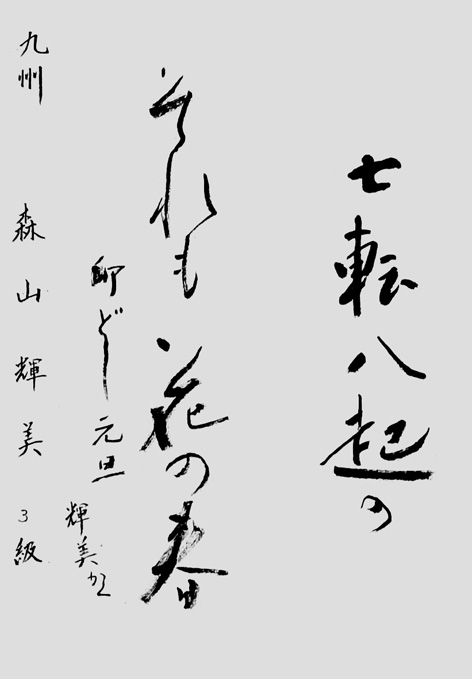 七転八起の
それも花の春
卯どし元旦
輝美かく
九州 森山輝美 3級